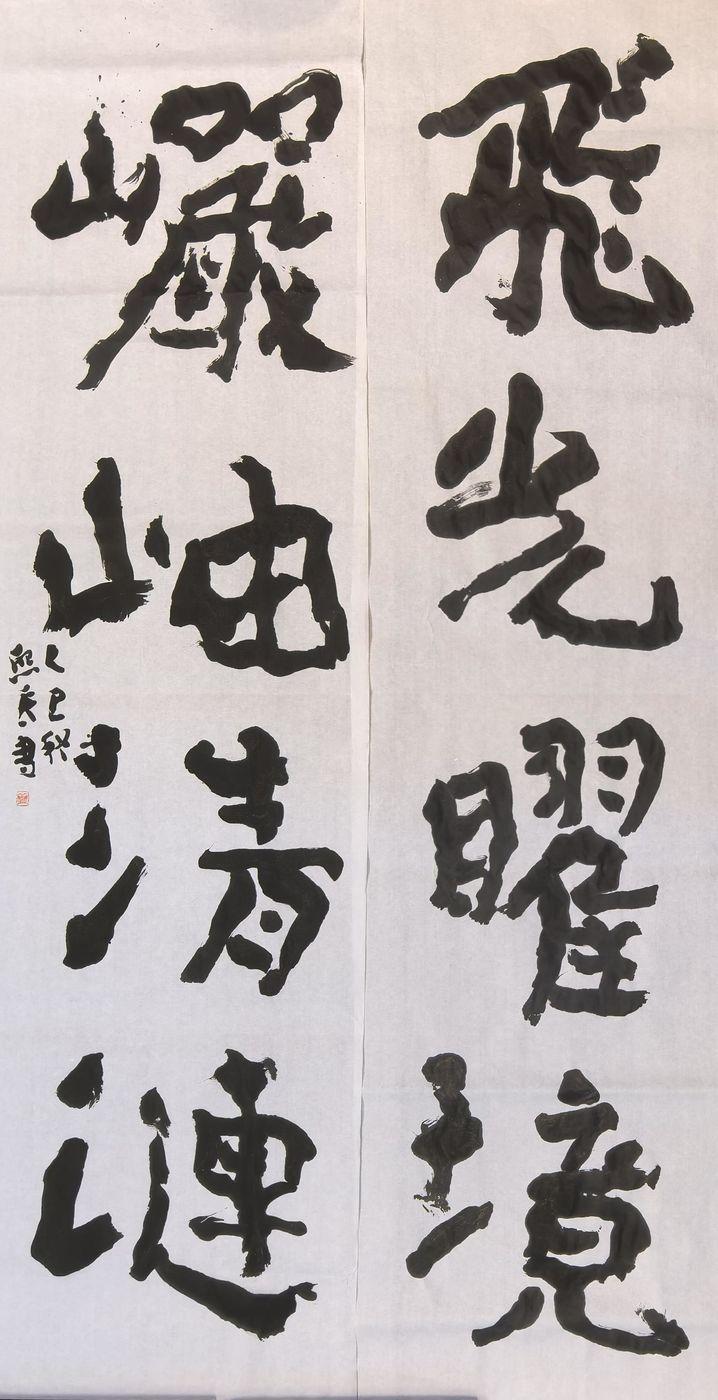 飛光曜境
巖岫清漣
乙巳秋
熙彥書